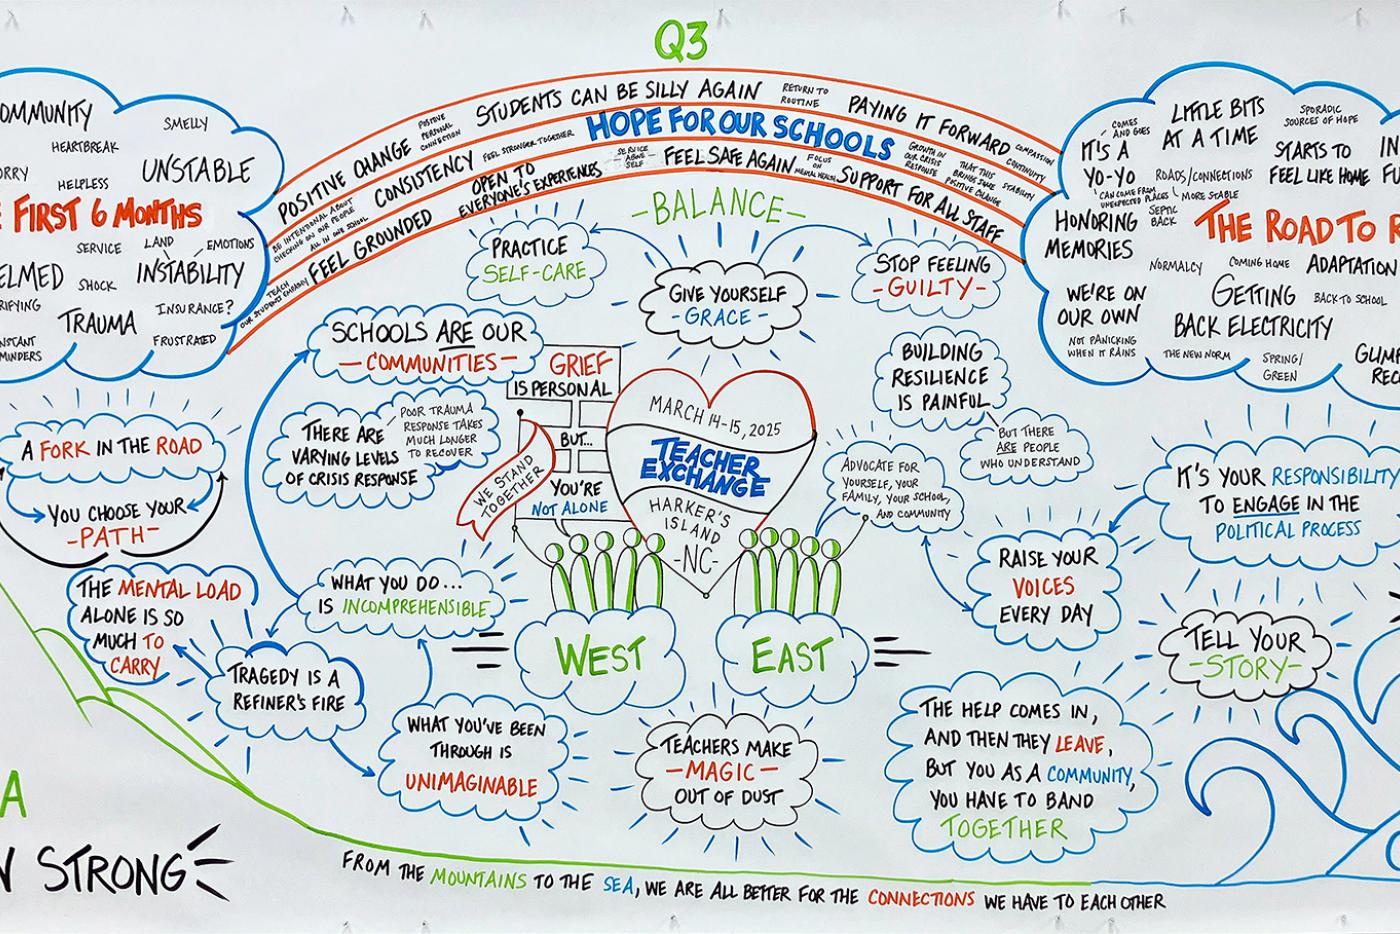 Q3
OMMUNITY
SMELLY
HEARTBREAK
ORRY
HELPLESS
UNSTABLE
E FIRST 6 MONTHS
SERVICE
LAND
INSTABILITY
EMOTIONS
ELMED
SHOCK
RIFYING
TRAUMA
INSURANCE?
NSTANT
MINDERS
FRUSTRATED
POSITIVE CHANGE
POSITIVE
PERSONAL
CONNECTION
STUDENTS CAN BE SILLY AGAIN
RETURN TO
ROUTINE
PAYING IT FORWARD
COMPASSION
CONTINUITY
BE INTENTIONAL ABOUT
CHECKING ON OUR PEOPLE
ALL IN ONE SCHOOL
CONSISTENCY
FEEL STRONGER TOGETHER
HOPE FOR OUR SCHOOLS
GROWTH IN
OUR CRISIS
RESPONSE
THAT THIS
BRINGS TRUE
POSITIVE CHANGE
STABILITY
TEACH
OUR STUDENTS EMPATHY
FEEL GROUNDED
OPEN TO
EVERYONE'S EXPERIENCES
SERVICE
ABOVE
SELF
FEEL SAFE AGAIN
FOCUS
ON
MENTAL HEALTH
SUPPORT FOR ALL STAFF
COMES
AND GOES
LITTLE BITS
AT A TIME
SPORADIC
SOURCES OF HOPE
IT'S A
YO-YO
CAN COME FROM
UNEXPECTED PLACES
ROADS/CONNECTIONS
MORE STABLE
STARTS TO
FEEL LIKE HOME
IN
FU
HONORING
MEMORIES
SEPTIC
BACK
THE ROAD TO R
NORMALCY
COMING HOME
ADAPTATION
WE'RE ON
OUR OWN
GETTING
BACK ELECTRICITY
BACK TO SCHOOL
NOT PANICKING
WHEN IT RAINS
THE NEW NORM
SPRING/
GREEN
GLIMP
REC
-BALANCE-
PRACTICE
SELF-CARE
GIVE YOURSELF
-GRACE-
STOP FEELING
-GUILTY-
SCHOOLS ARE OUR
-COMMUNITIES-
GRIEF
IS PERSONAL
BUT...
YOU'RE
NOT ALONE
WE STAND
TOGETHER
MARCH 14-15, 2025
TEACHER
EXCHANGE
HARKER'S
ISLAND
-NC-
BUILDING
RESILIENCE
IS PAINFUL
BUT THERE
ARE PEOPLE
WHO UNDERSTAND
THERE ARE
VARYING LEVELS
OF CRISIS RESPONSE
POOR TRAUMA
RESPONSE TAKES
MUCH LONGER
TO RECOVER
ADVOCATE FOR
YOURSELF, YOUR
FAMILY, YOUR SCHOOL,
AND COMMUNITY
A FORK IN THE ROAD
YOU CHOOSE YOUR
-PATH-
IT'S YOUR RESPONSIBILITY
TO ENGAGE IN THE
POLITICAL PROCESS
RAISE YOUR
VOICES
EVERY DAY
THE MENTAL LOAD
ALONE IS SO
MUCH TO
CARRY
WHAT YOU DO...
IS INCOMPREHENSIBLE
TRAGEDY IS A
REFINER'S FIRE
WEST
EAST
TELL YOUR
-STORY-
WHAT YOU'VE BEEN
THROUGH IS
UNIMAGINABLE
TEACHERS MAKE
-MAGIC-
OUT OF DUST
THE HELP COMES IN,
AND THEN THEY LEAVE,
BUT YOU AS A COMMUNITY,
YOU HAVE TO BAND
TOGETHER
A
N STRONG
FROM THE MOUNTAINS TO THE SEA, WE ARE ALL BETTER FOR THE CONNECTIONS WE HAVE TO EACH OTHER